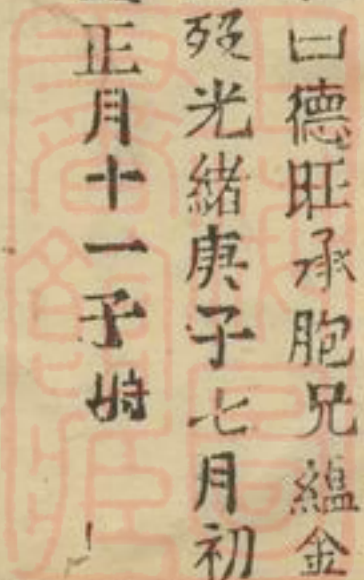 曰德旺承胞兄緼金
歿光緒庚子七月初
正月十一子時